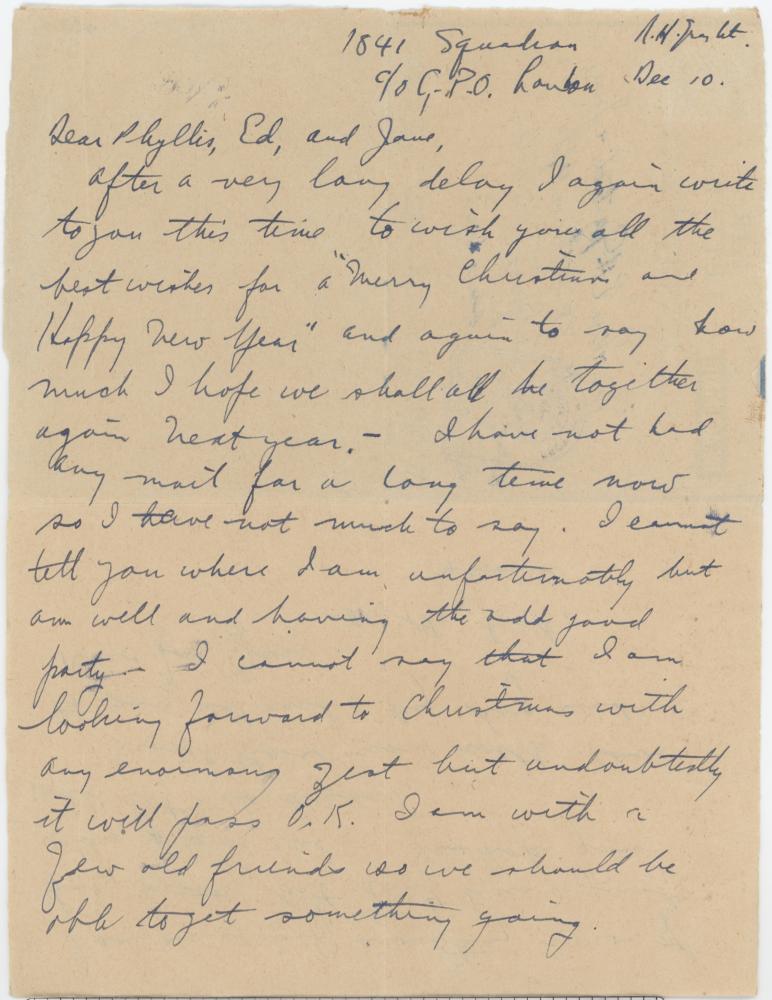 1841 Squadron
c/o G.P.O. London Dec 10.
Dear Phyllis, Ed, and Jane,
After a very long delay I again write
to you this time to wish you all the
best wishes for a "Merry Christmas and
Happy New Year" and again to say how
much I hope we shall all be together
again next year. - I have not had
any mail for a long time now
so I have not much to say. I cannot
tell you where I am unfortunately but
am well and having the odd good
party - I cannot say that I am
looking forward to Christmas with
any enormous zest but undoubtedly
it will pass O.K. I am with a
few old friends so we should be
able to get something going.